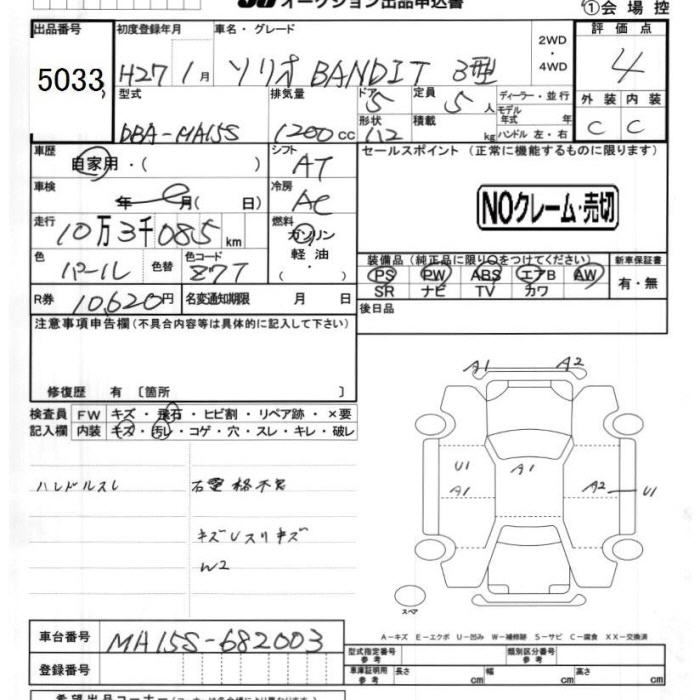 オークション出品申込書
①会場控
出品番号 初度登録年月 車名・グレード 2WD ・ 4WD 評価点
5033 H27 1月 ソリオ BANDIT 3型 4
型式 排気量 ドア 5 定員 5人 ディーラー・並行 外装 内装
DBA-MA15S 1200cc 形状 112 積載 kg モデル年式 年 ハンドル 左・右 C C
車歴 自家用・( ) シフト AT セールスポイント (正常に機能するものに限ります)
車検 年 月( 日) 冷房 AC
NOクレーム・売切
走行 10万3千085km 燃料 ガソリン 軽油
色 パール 色替 色コード Z7T
装備品(純正品に限り○をつけてください) 新車保証書
PS PW ABS エアB AW 有・無
SR ナビ TV カワ
R券 10,620円 名変通知期限 月 日 後日品
注意事項申告欄(不具合内容等は具体的に記入して下さい)
修復歴 有 〔箇所 〕
検査員 FW キズ・飛石・ヒビ割・リペア跡・×要
記入欄 内装 キズ・汚レ・コゲ・穴・スレ・キレ・破レ
A1 A2
U1 A1 A1 A2 U1
ハンドルスレ
キズUスリキズ
W2
スペア
A-キズ E-エクボ U-凹み W-補修跡 S-サビ C-腐食 XX-交換済
車台番号 MA15S-682003 型式指定番号 参考 類別区分番号 参考
登録番号 車庫証明用 参考 長さ cm 幅 cm 高さ cm
希望出品コーナー